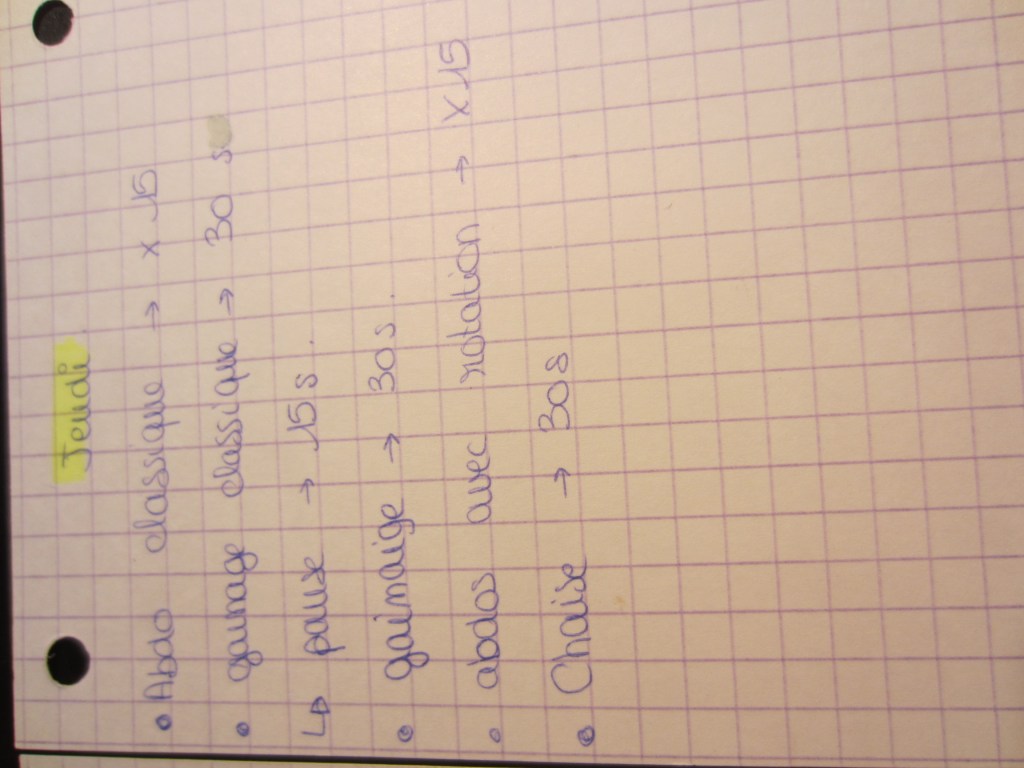 Jeudi.
• Abdo classique → x 15
• gainage classique → 30 s
↳ pause → 15 s.
• gaimaige → 30s.
• abdos avec rotation → x 15
• Chaise → 30s